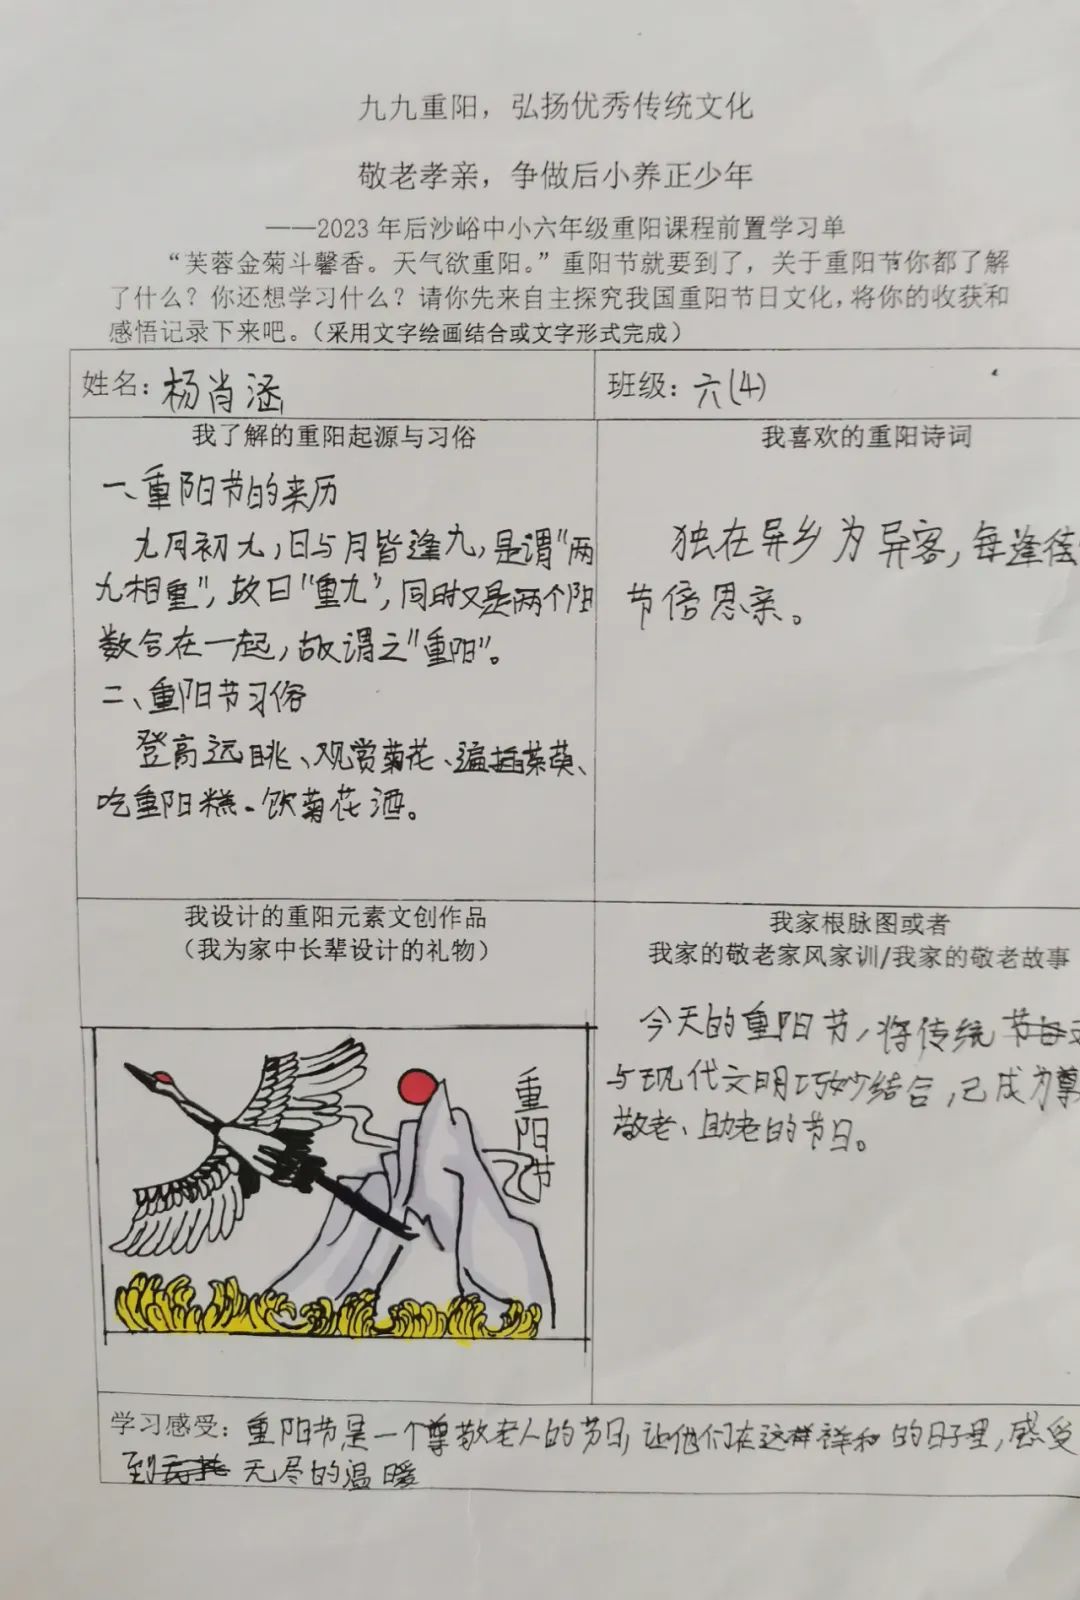 九九重阳，弘扬优秀传统文化
敬老孝亲，争做后小养正少年
——2023年后沙峪中小六年级重阳课程前置学习单
“芙蓉金菊斗馨香。天气欲重阳。”重阳节就要到了，关于重阳节你都了解
了什么？你还想学习什么？请你先来自主探究我国重阳节日文化，将你的收获和
感悟记录下来吧。（采用文字绘画结合或文字形式完成）
姓名：杨肖涵
班级：六(4)
我了解的重阳起源与习俗
一、重阳节的来历
九月初九，日与月皆逢九，是谓“两
九相重”，故曰“重九”，同时又是两个阳
数合在一起，故谓之“重阳”。
二、重阳节习俗
登高远眺、观赏菊花、遍插茱萸、
吃重阳糕、饮菊花酒。
我喜欢的重阳诗词
独在异乡为异客，每逢佳
节倍思亲。
我设计的重阳元素文创作品
（我为家中长辈设计的礼物）
重阳节
我家根脉图或者
我家的敬老家风家训/我家的敬老故事
今天的重阳节，将传统
与现代文明巧妙结合，已成为尊
敬老、助老的节日。
学习感受：重阳节是一个尊敬老人的节日，让他们在这样祥和的日子里，感受
到 无尽的温暖